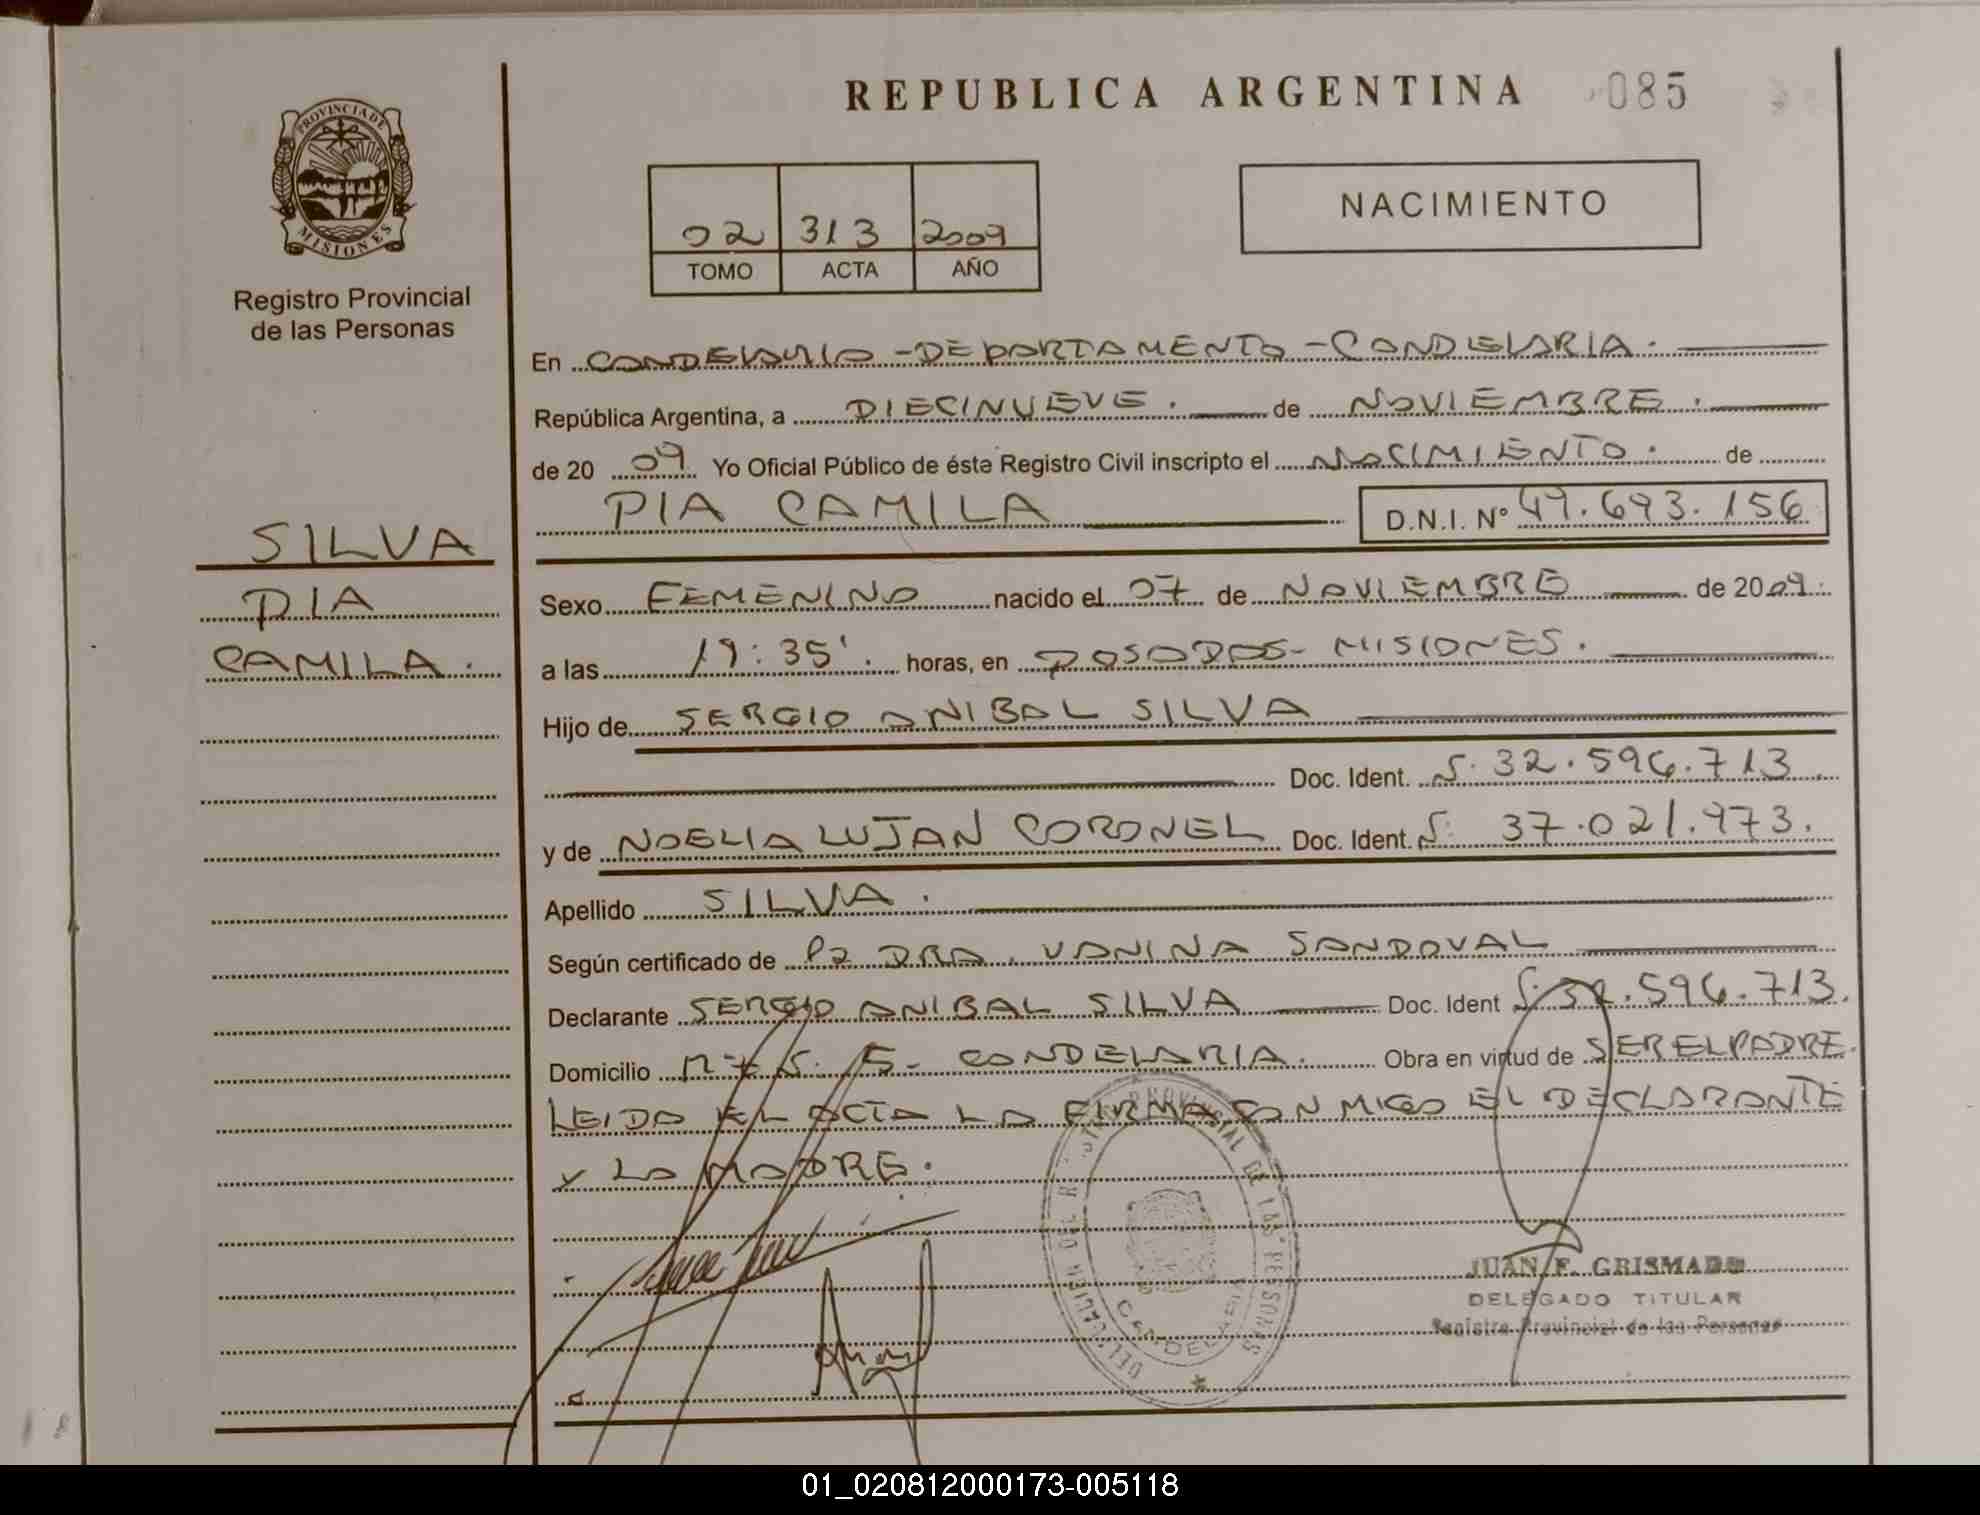 REPUBLICA ARGENTINA 085
PROVINCIA DE
MISIONES
Registro Provincial
de las Personas
NACIMIENTO
02 313 2009
TOMO ACTA AÑO
En CANDELARIA - DEPARTAMENTO - CANDELARIA.
República Argentina, a DIECINUEVE. de NOVIEMBRE.
de 20 09 Yo Oficial Público de éste Registro Civil inscripto el NACIMIENTO. de
PIA CAMILA D.N.I. Nº 49.693.156
SILVA
PIA
CAMILA.
Sexo FEMENINO nacido el 07 de NOVIEMBRE de 2009.
a las 19:35'. horas, en POSADAS - MISIONES.
Hijo de SERGIO ANIBAL SILVA
Doc. Ident. 32.596.713
y de NOELIA LUJAN CORONEL Doc. Ident. 37.021.973.
Apellido SILVA.
Según certificado de DRA. VANINA SANDOVAL
Declarante SERGIO ANIBAL SILVA Doc. Ident 32.596.713.
Domicilio CANDELARIA. Obra en virtud de SER EL PADRE.
LEIDA EL ACTA LA FIRMA CON MIGO EL DECLARANTE
Y LA MADRE.
DELEGACION DEL REGISTRO PROVINCIAL DE LAS PERSONAS
CANDELARIA
JUAN F. GRISMADO
DELEGADO TITULAR
Registro Provincial de las Personas
01_020812000173-005118